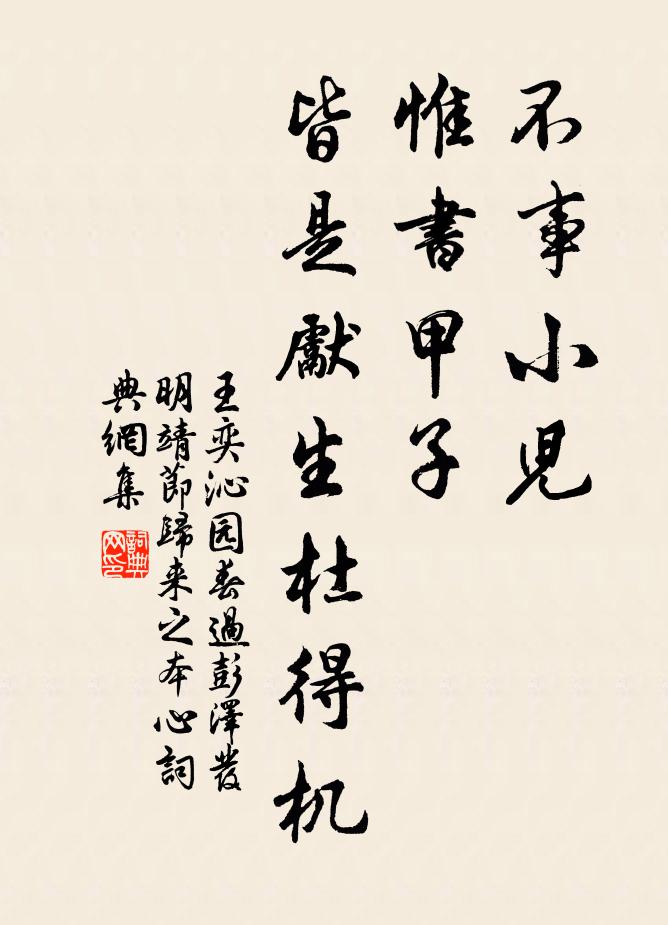 不事小児
惟書甲子
皆是獻生杜得机
王奕沁园春過彭澤發
明靖節歸来之本心詞
典網集
詞典
网印